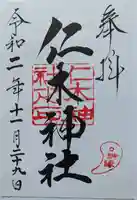 奉拝
仁木神社
令和二年十一月二十九日